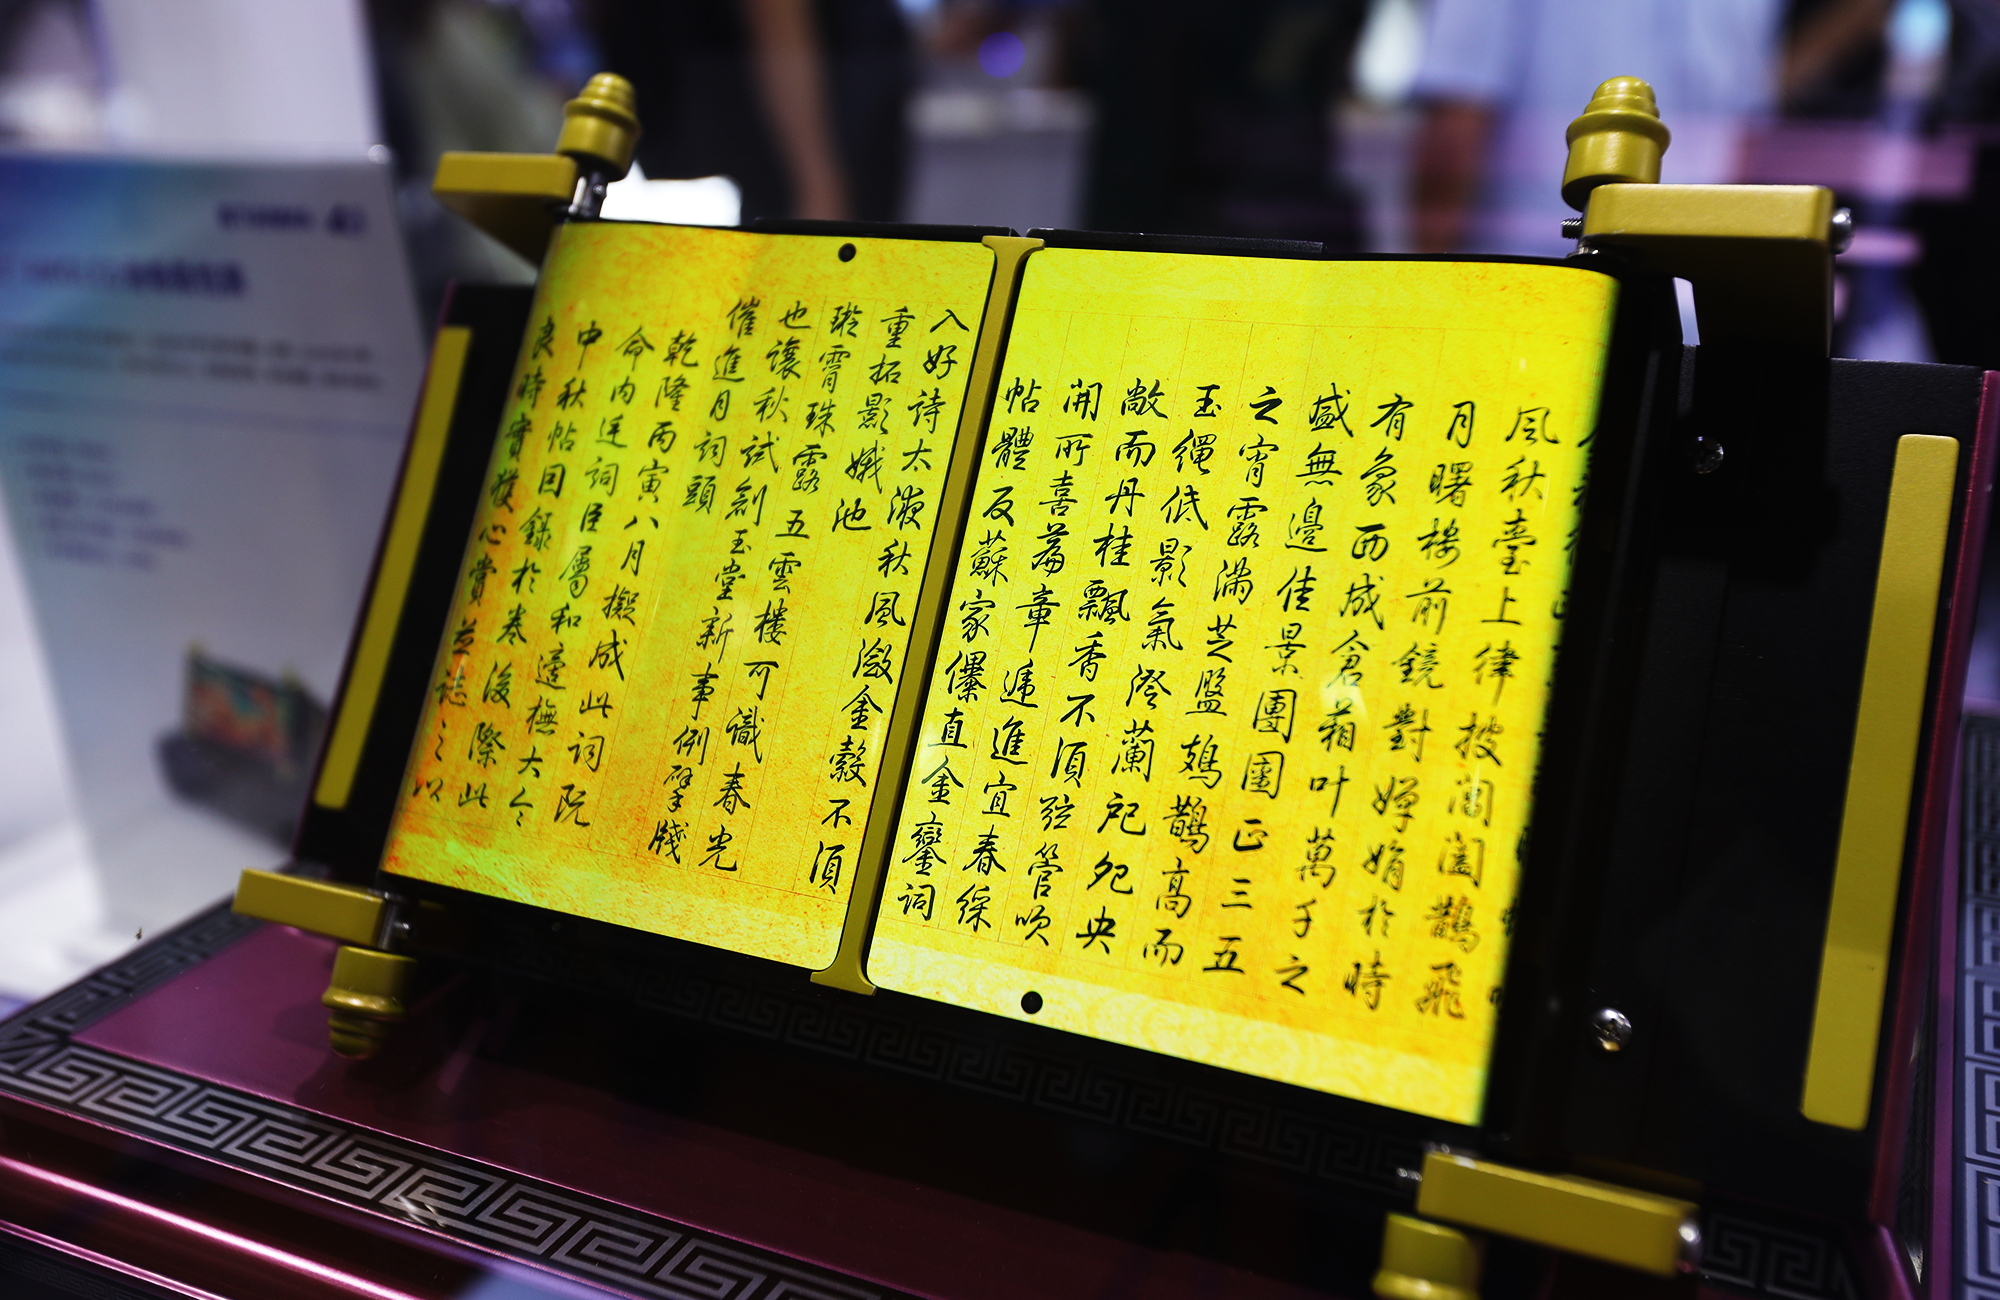 風秋臺上律披閶闔鵲飛
月曙樓前鏡對嬋娟於時
有象西成倉箱叶萬千之
盛無邊佳景團圞正三五
之宵露滿芝盤鳷鵲高而
玉繩低影氣澄蘭戺兜央
敞而丹桂飄香不須弦管吹
開所喜篇章遞進宜春綵
帖體反蘇家儤直金鑾詞
入好詩太液秋風瀲金縠不須
重拓影娥池
璇霄珠露五雲樓可識春光
也讓秋試創玉堂新事例擘牋
催進月詞頭
乾隆丙寅八月擬成此詞既
命內廷詞臣屬和遂橅大令
中秋帖因錄於卷後際此
良時實愜心賞並誌之以